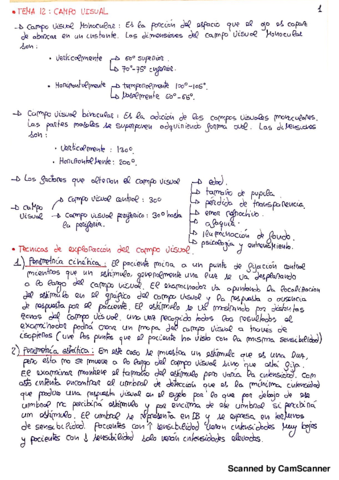 1
• TEMA 12: CAMPO VISUAL
→ Campo Visual Monocular: Es la porción del espacio que el ojo es capaz
de abarcar en un instante. Las dimensiones del campo Visual Monocular
son:
• Verticalmente → 60° superior.
→ 70°-75° inferior.
• Horizontalmente → temporalmente 100°-105°.
→ Nasalmente 60°-65°.
→ Campo visual binocular: Es la adición de los campos visuales monoculares.
Las partes nasales se superponen adquiriendo forma oval. Las dimensiones
son:
• Verticalmente: 130°.
• Horizontalmente: 200°.
→ Los factores que alteran el campo visual → edad.
→ tamaño de pupila
→ pérdida de transparencia.
→ error refractivo.
→ afaquia.
→ iluminación de fondo.
→ psicología y entrenamiento.
→ Campo visual → campo visual central: 30°
→ campo visual periférico: 30° hasta
la periferia.
• Técnicas de exploración del campo visual.
1) Perimetría cinética: El paciente mira a un punto de fijación central
mientras que un estímulo, generalmente una luz se va desplazando
a lo largo del campo visual. El examinador va apuntando la localización
del estímulo en el gráfico del campo visual y la respuesta o ausencia
de respuesta por el paciente. El estímulo se va mostrando por distintas
zonas del campo visual, una vez recogido todos los resultados el
examinador podrá crear un mapa del campo visual a través de
isópteras (une los puntos que el paciente ha visto con la misma sensibilidad)
2) Perimetría estática: En este caso se muestra un estímulo que es una luz,
pero esta no se mueve a lo largo del campo visual sino que está fija.
El examinador mantiene el tamaño del estímulo pero varía la intensidad. Con
este criterio encontrar el umbral de detección que es la mínima intensidad
que produce una respuesta visual en el sujeto por lo que por debajo de ese
umbral no percibirá estímulo y por encima de ese umbral sí percibirá
un estímulo. El umbral se representa en dB y se expresa en términos
de sensibilidad. Pacientes con ↑ sensibilidad verán intensidades muy bajas
y pacientes con ↓ sensibilidad solo verán intensidades elevadas.
Scanned by CamScanner